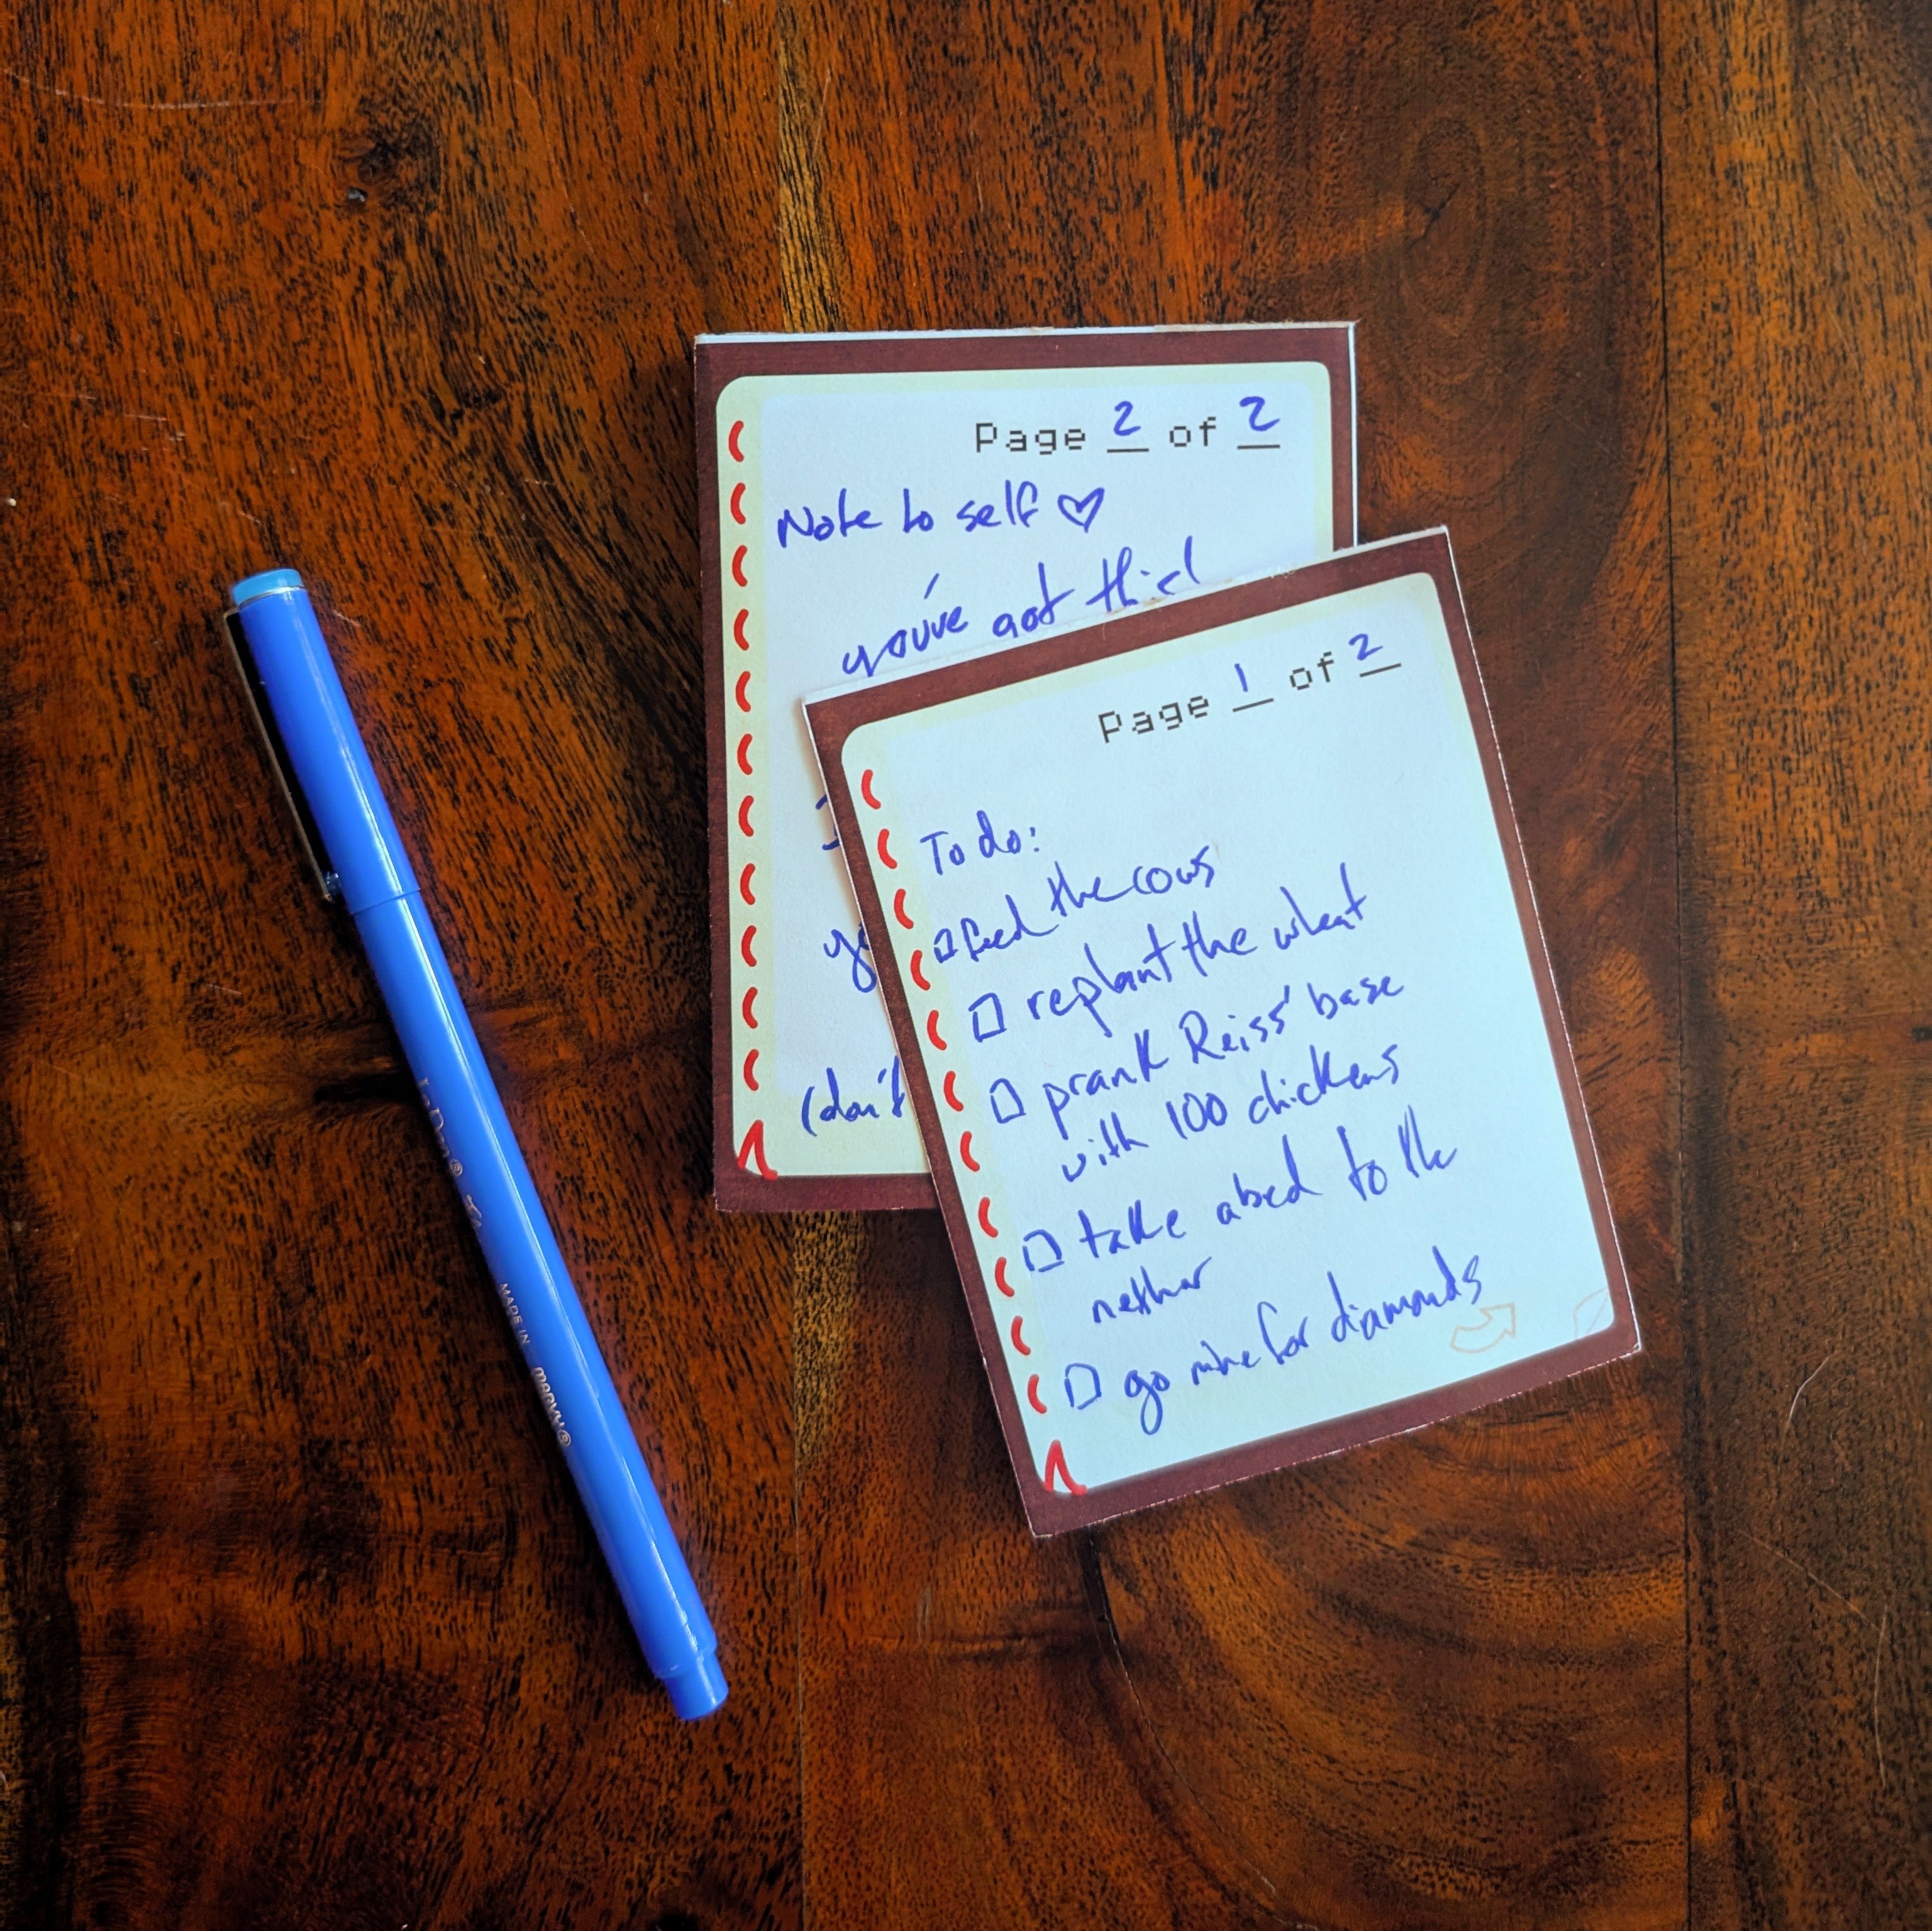 Page 2 of 2
Note to self ♡
you've got this!
(don't
Page 1 of 2
To do:
feed the cows
replant the wheat
prank Reiss' base
with 100 chickens
take abed to the
nether
go mine for diamonds
LePen®
MADE IN
MARVY®